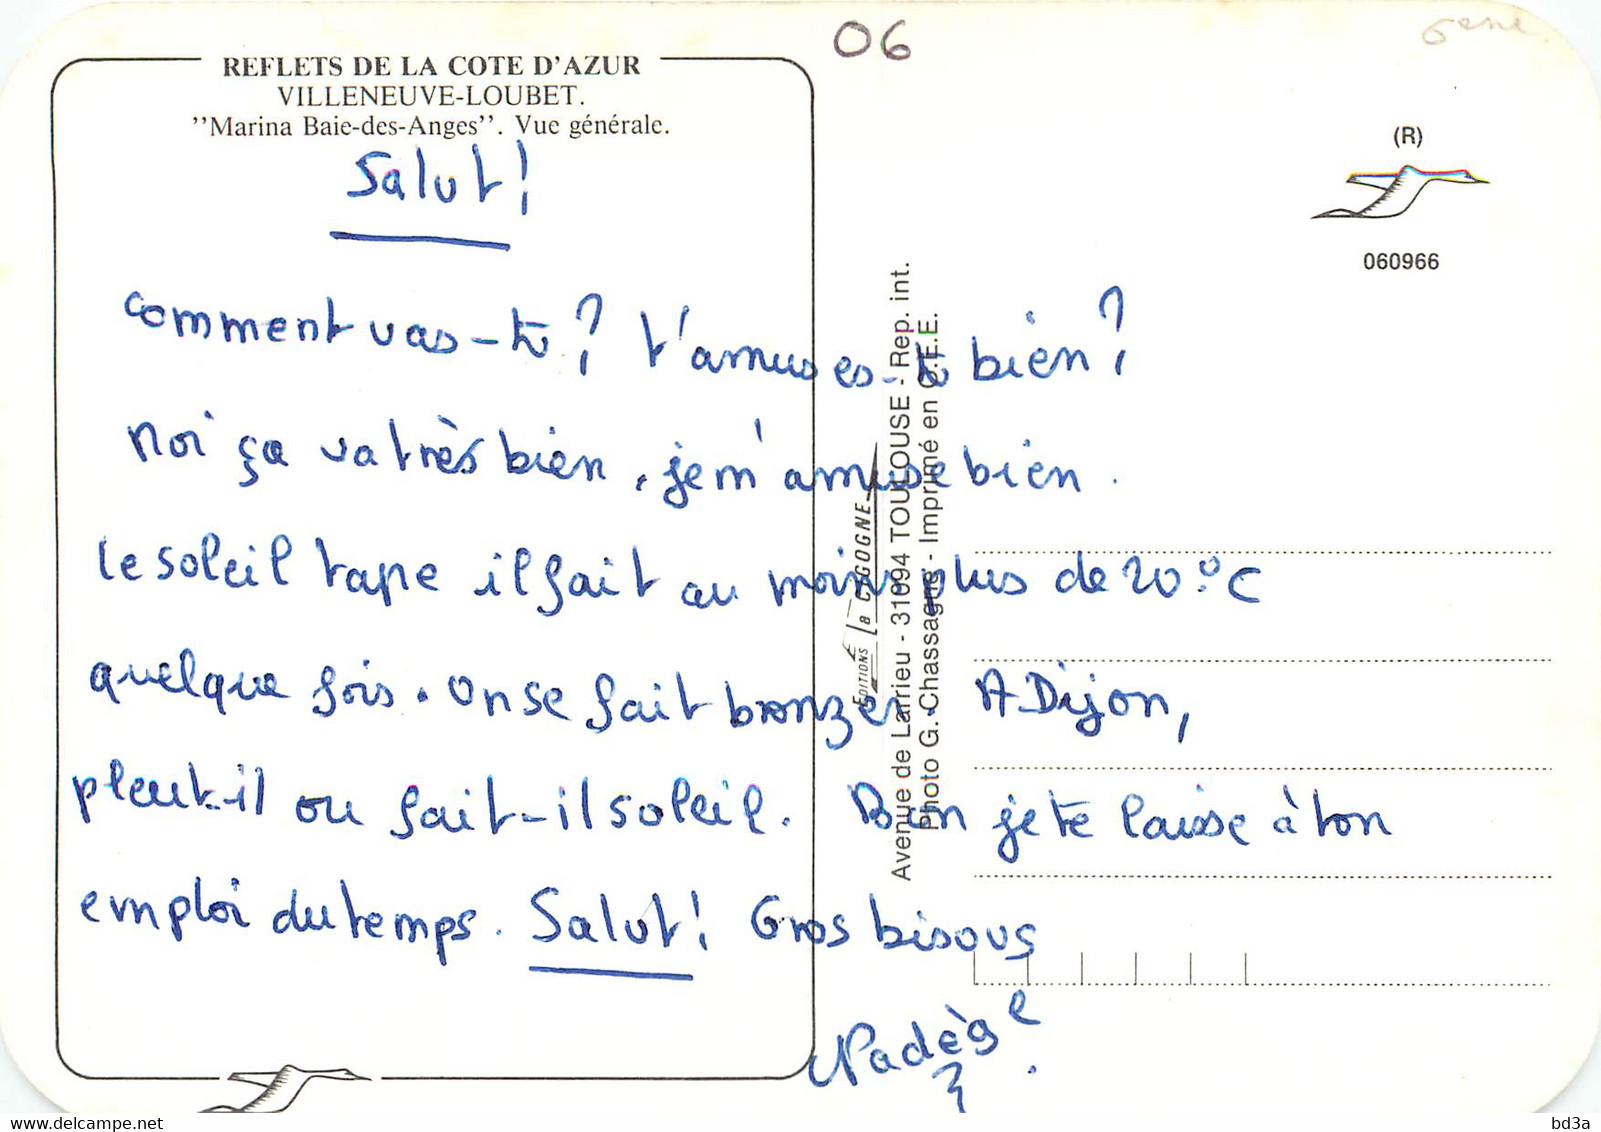 06
REFLETS DE LA COTE D'AZUR
VILLENEUVE-LOUBET.
''Marina Baie-des-Anges''. Vue générale.
(R)
060966
Salut!
comment vas-tu? t'amuses-tu bien?
Moi ça va très bien, je m'amuse bien.
le soleil tape il fait au moins plus de 20°C
quelque fois. On se fait bronzer. A Dijon,
pleut-il ou fait-il soleil. Bon je te laisse à ton
emploi du temps. Salut! Gros bisous
Nadège
EDITIONS La CIGOGNE
Avenue de Larrieu - 31094 TOULOUSE - Rep. int.
Photo G. Chassagne - Imprimé en C.E.E.
www.delcampe.net
bd3a